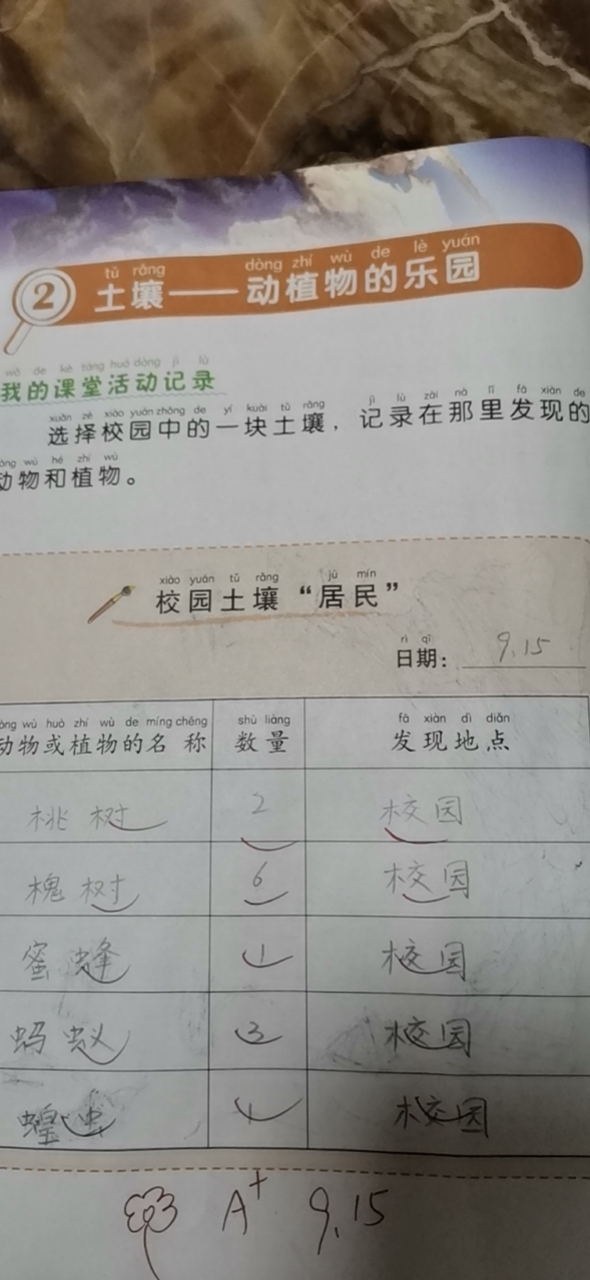 tǔ rǎng dòng zhí wù de lè yuán
2 土壤——动植物的乐园
wǒ de kè táng huó dòng jì lù
我的课堂活动记录
xuǎn zé xiào yuán zhōng de yí kuài tǔ rǎng jì lù zài nà lǐ fā xiàn de
选择校园中的一块土壤，记录在那里发现的
dòng wù hé zhí wù
动物和植物。
xiào yuán tǔ rǎng jū mín
校园土壤“居民”
rì qī
日期：9.15
dòng wù huò zhí wù de míng chēng shù liàng fā xiàn dì diǎn
动物或植物的名称 数量 发现地点
桃树 2 校园
槐树 6 校园
蜜蜂 1 校园
蚂蚁 3 校园
蝗虫 1 校园
A+ 9.15